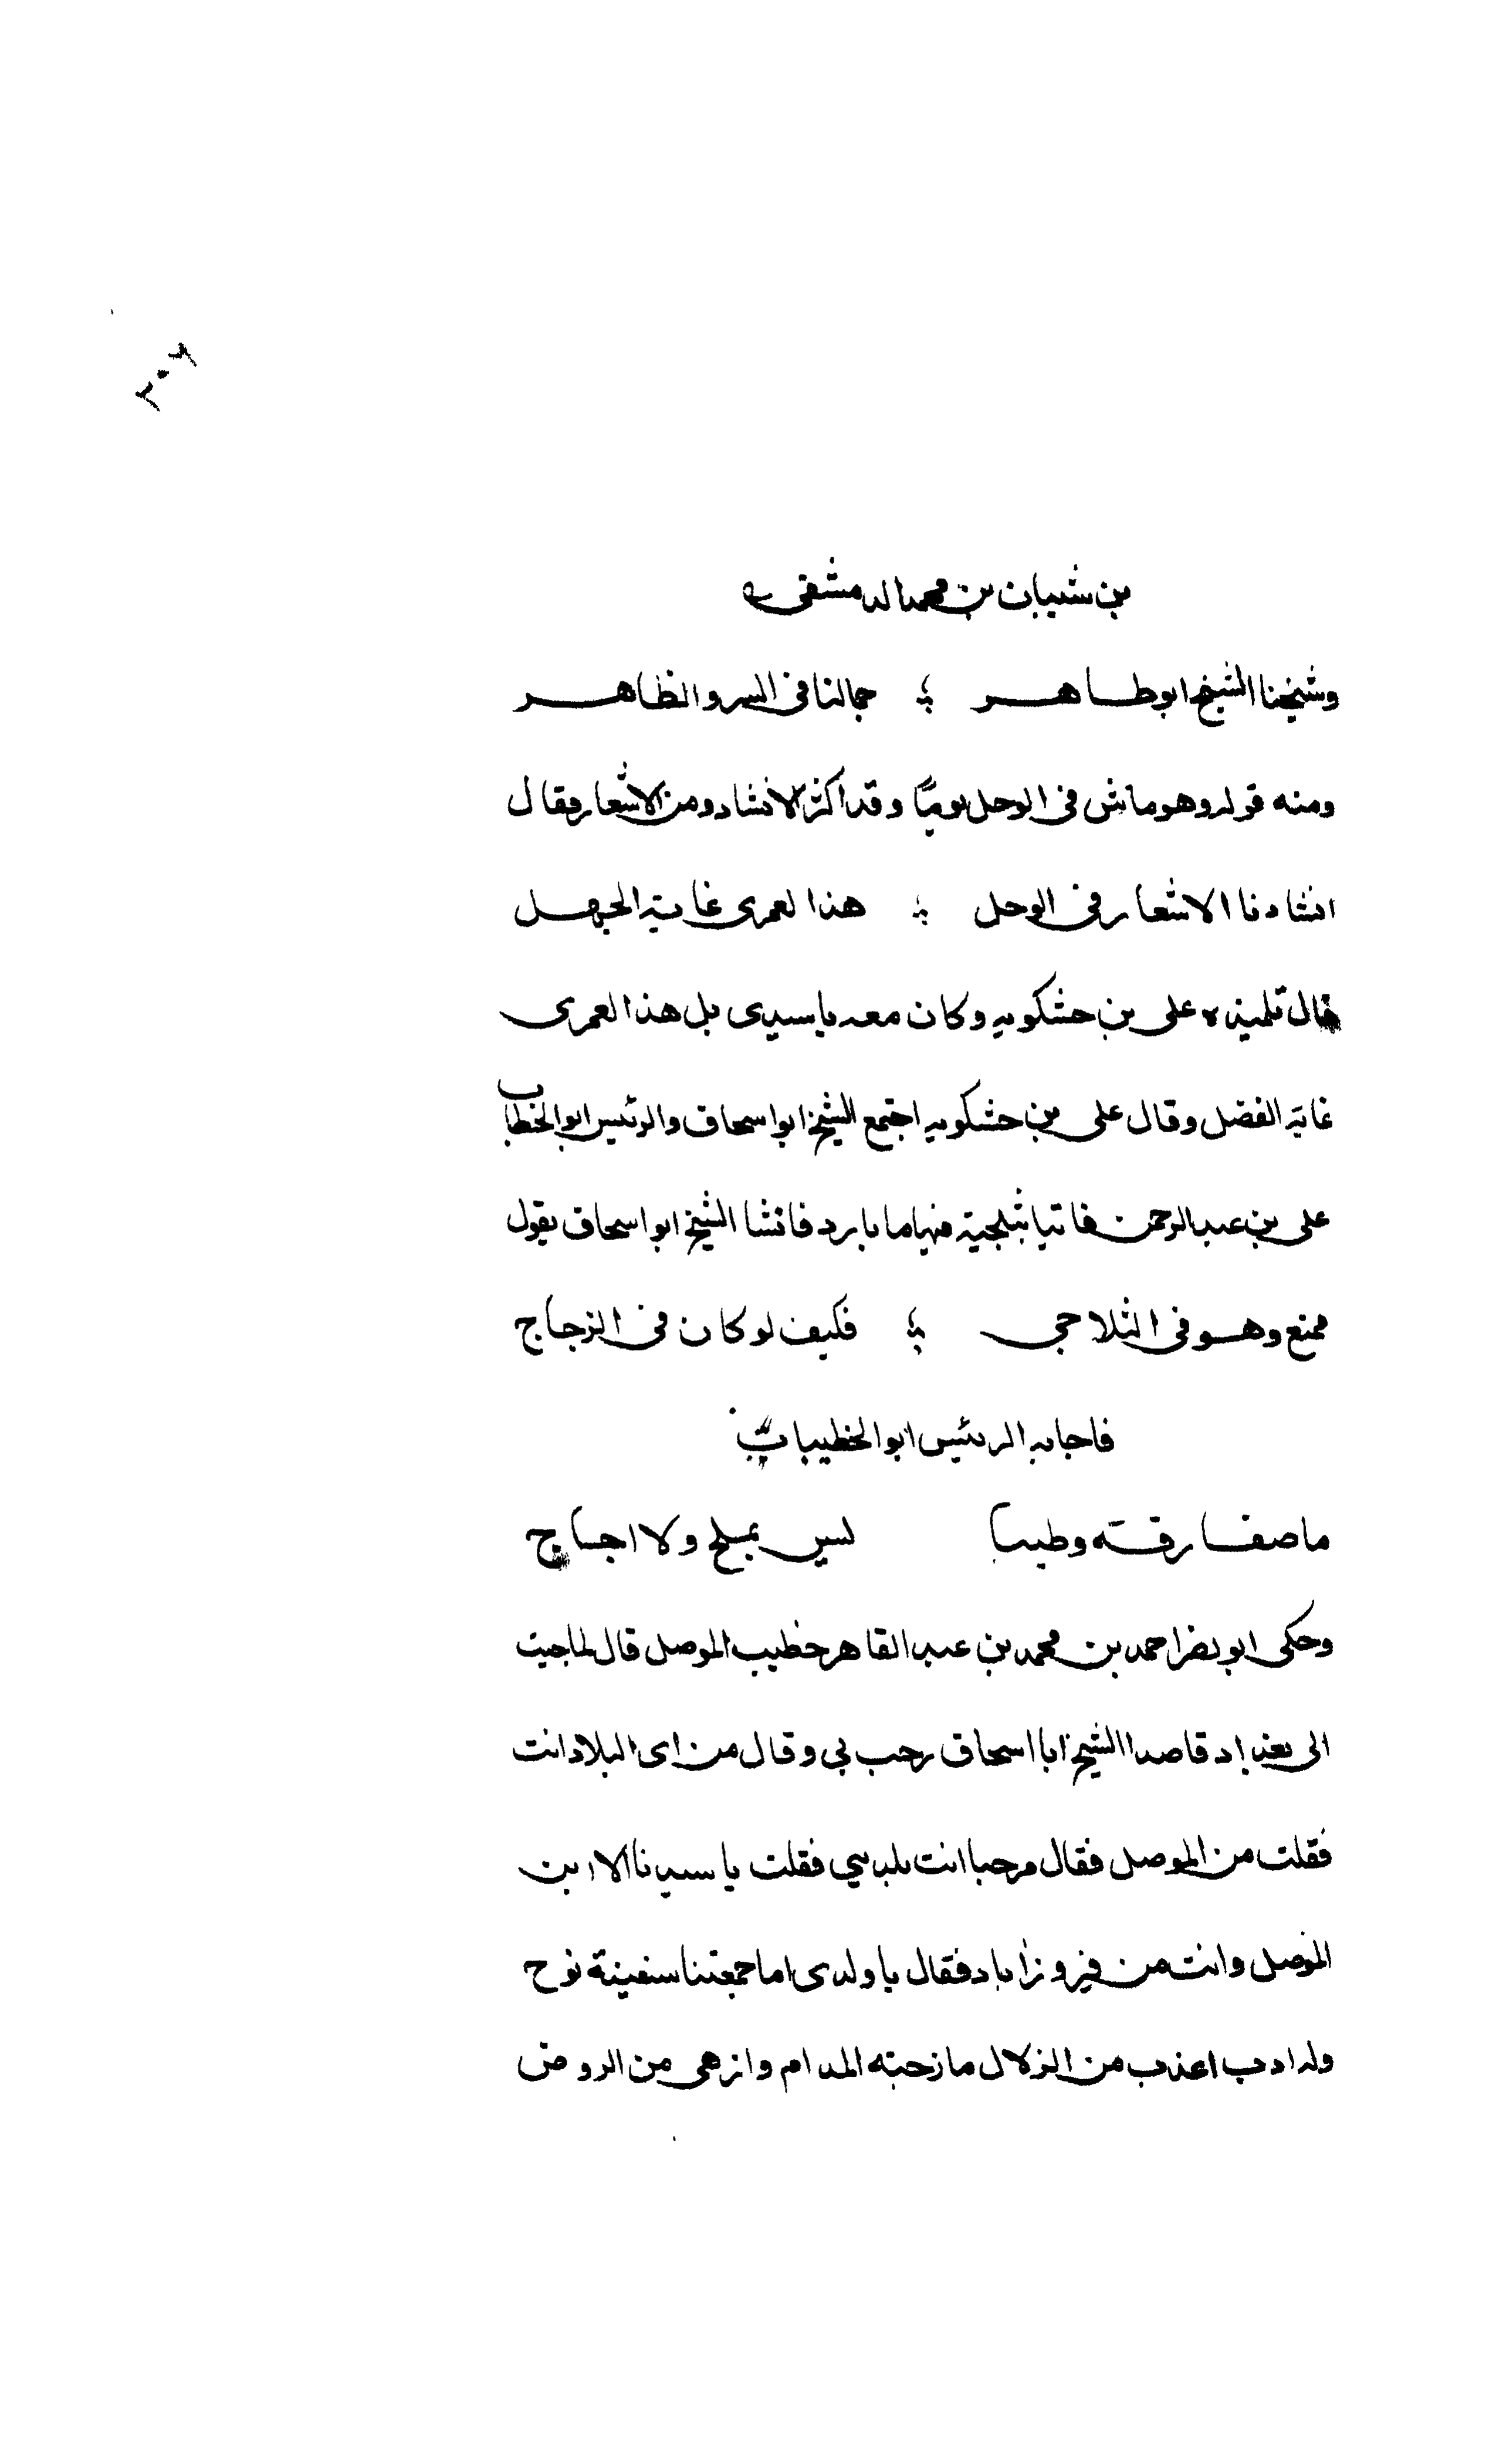 ٢٠٢
بن شيبان بن محمد الدمشقى
وشيخنا الشيخ ابو طاهر ؛ جمالنا فى السر والظاهر
ومنه قوله وهو ماش فى الوحل يوميًا وقد اكثر الانشاد ومن الاشعار فقال
انشادنا الاشعار فى الوحل ؛ هذا لعمرى غاية الجهل
قال تلميذه على بن حشكويه وكان معه يا سيدى بل هذا لعمرى
غاية الفضل وقال على بن حشكويه اجتمع الشيخ ابو اسحاق والرئيس ابو الخطاب
على بن عبد الرحمن فاتيا بثلجية فيها ما بارد فانشا الشيخ ابو اسحاق يقول
ممنع وهو فى الثلاجى ؛ فكيف لو كان فى الزجاج
فاجابه الرئيس ابو الخطيبات
ما صفا رقته وطيبا ليس بملح ولا اجاج
وحكى ابو نصر احمد بن محمد بن عبد القاهر خطيب الموصل قال لما جيت
الى بغداد قاصدا الشيخ ابا اسحاق رحب بى وقال من اى البلاد انت
فقلت من الموصل فقال مرحبا انت بلديي فقلت يا سيدنا الا ابن
الموصل وانت من فيروزاباد فقال يا ولدى اما جمعتنا سفينة نوح
وله ادب اعذب من الزلال مازحته المدام وازهى من الروض